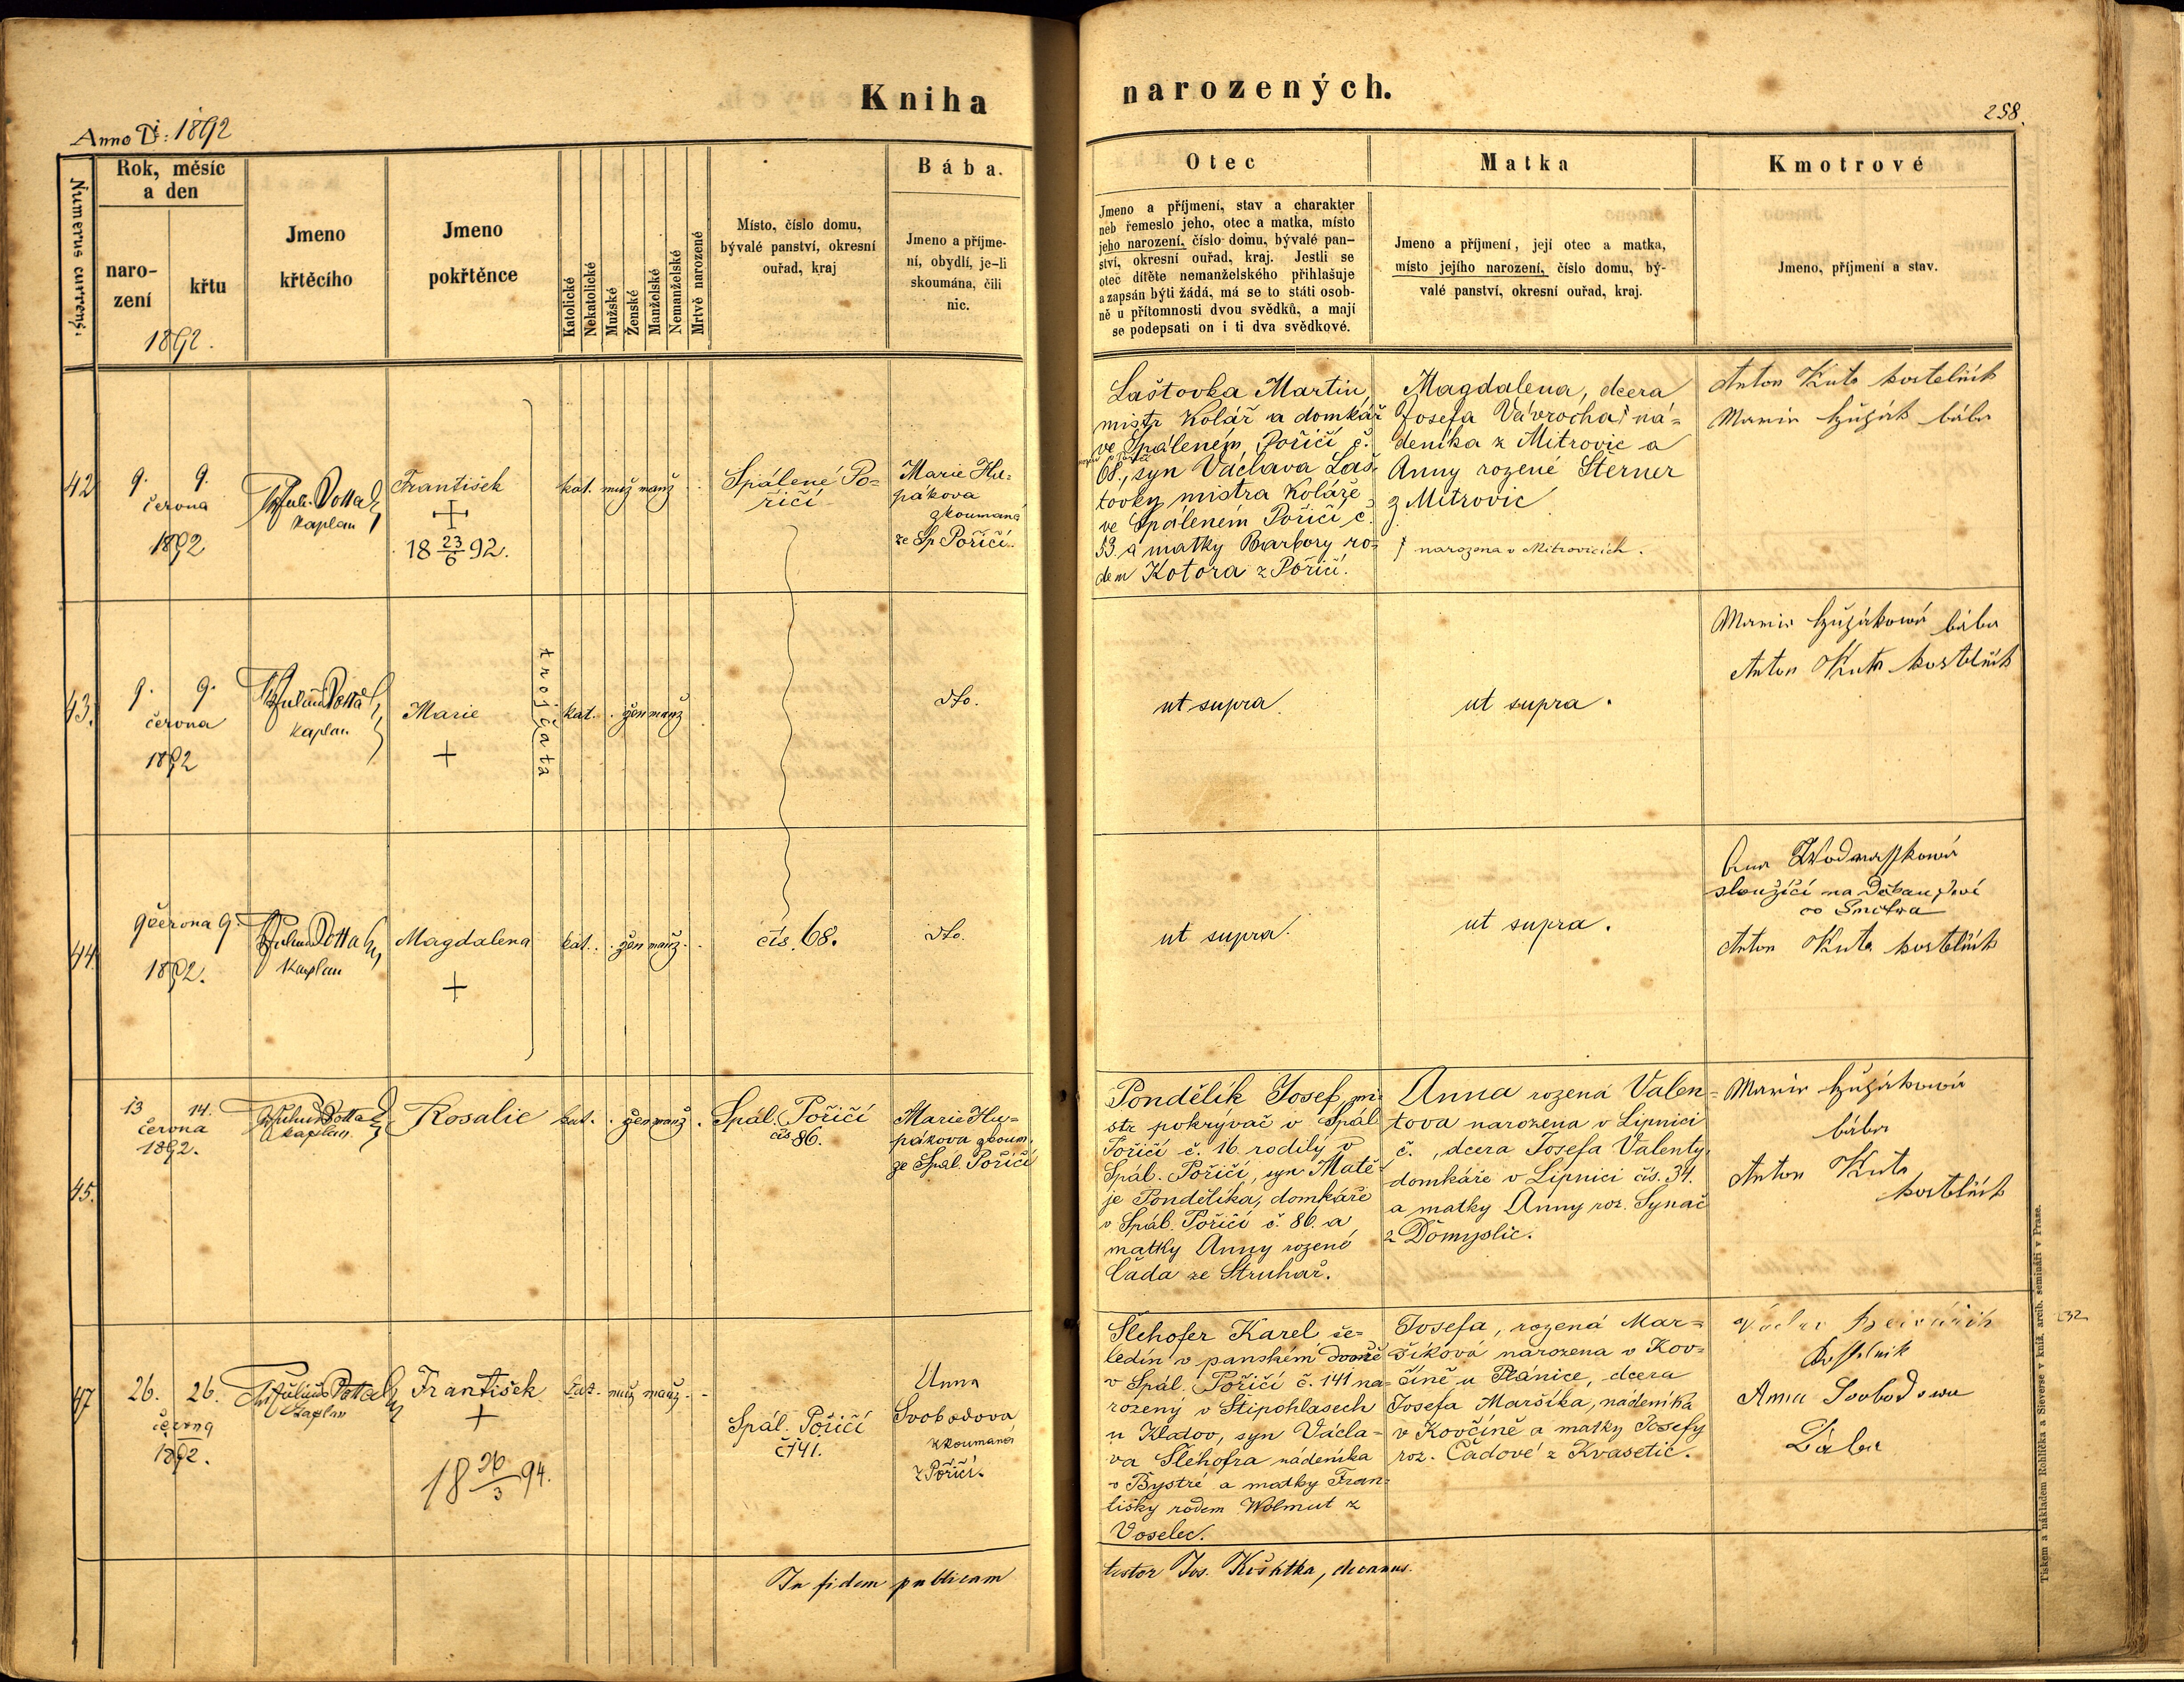 Kniha
narozených.
Anno D: 1892
258.
Numerus currens.
Rok, měsíc
a den
naro-
zení
křtu
1892.
Jmeno
křtěcího
Jmeno
pokřtěnce
Katolické
Nekatolické
Mužské
Ženské
Manželské
Nemanželské
Mrtvě narozené
Místo, číslo domu,
bývalé panství, okresní
ouřad, kraj
Bába.
Jmeno a příjme-
ní, obydlí, je-li
skoumána, čili
nic.
Otec
Jmeno a příjmení, stav a charakter
neb řemeslo jeho, otec a matka, místo
jeho narození, číslo domu, bývalé pan-
ství, okresní ouřad, kraj. Jestli se
otec dítěte nemanželského přihlašuje
a zapsán býti žádá, má se to státi osob-
ně u přítomnosti dvou svědků, a mají
se podepsati on i ti dva svědkové.
Matka
Jmeno a příjmení, její otec a matka,
místo jejího narození, číslo domu, bý-
valé panství, okresní ouřad, kraj.
Kmotrové
Jmeno, příjmení a stav.
42
9. 9.
června
1892
Kaplan
František
18 23/6 92.
kat. muž manž
Spálené Po=
říčí
Marie Hu=
pákova
zkoumaná
ze Sp. Poříčí.
Laštovka Martin,
mistr Kolář a domkář
ve Spáleném Poříčí č.
68., syn Václava Laš-
tovky mistra Koláře
ve Spáleném Poříčí č.
53 a matky Barbory ro=
dem Kotora z Poříčí.
Magdalena, dcera
Josefa Vávrocha ná=
deníka z Mitrovic a
Anny rozené Sterner
z Mitrovic
narozena v Mitrovicích.
Anton Kuta kostelník
Marie bába
43.
9. 9.
června
1892
Kaplan
Marie
trojčata
kat. . žen manž
dto.
ut supra
ut supra.
Marie bába
Anton Kuta kostelník
44.
9 června 9.
1892.
Kaplan
Magdalena
kat. . žen manž.
čís. 68.
dto.
ut supra.
ut supra.
sloužící na
Anton Kuta kostelník
45.
13 14.
června
1892.
kaplan.
Rosalie
kat. . žen manž.
Spál. Poříčí
čís 86.
Marie Hu=
pákova zkoum.
ze Spál. Poříčí
Pondělík Josef, mi-
str pokrývač v Spál
Poříčí č. 16 rodilý v
Spál. Poříčí, syn Matě-
je Pondělíka, domkáře
v Spál. Poříčí č. 86. a
matky Anny rozené
Čada ze Struhař.
Anna rozená Valen=
tova narozena v Lipnici
č. , dcera Josefa Valenty,
domkáře v Lipnici čís. 34.
a matky Anny roz. Synač
z Domyslic.
Marie
bába
Anton Kuta
kostelník
47
26. 26.
června
1892.
Kaplan
František
18 26/3 94.
kat. muž manž.
Spál. Poříčí
č 141.
Anna
Svobodova
zkoumaná
z Poříčí.
Šlehofer Karel če=
ledín v panském dvoře
v Spál. Poříčí č. 141 na=
rozený v Štipohlasech
u Klatov, syn Václa=
va Šlehofra nádeníka
v Bystré a matky Fran=
tišky rodem Wolmut z
Voselec.
Josefa, rozená Mar=
šíková narozena v Kov=
číně u Plánice, dcera
Josefa Maršíka, nádeníka
v Kovčíně a matky Josefy
roz. Čadové z Kvasetic.
Václav
Kostelník
Anna Svobodowa
Bába
In fidem publicam
testor Jos. decanus.
Tiskem a nákladem Rohlíčka a Sieverse v kníž. arcib. semináři v Praze.